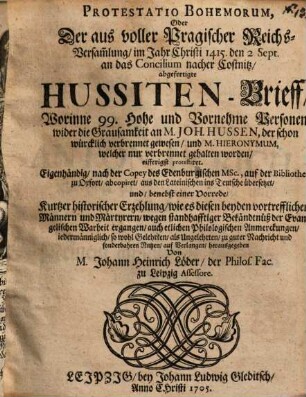 PROTESTATIO BOHEMORUM,
Oder
Der aus voller Pragischer Reichs-
Versam̃lung / im Jahr Christi 1415. den 2 Sept.
an das Concilium nacher Costnitz /
abgefertigte
HUSSITEN-Brieff /
Worinne 99. Hohe und Vornehme Personen
wider die Grausamkeit an M. JOH. HUSSEN, der schon
würcklich verbrennet gewesen / und M. HIERONYMUM,
welcher nur verbrennet gehalten worden /
eifferigst protestiret.
Eigenhändig / nach der Copey des Edenburgischen MSc. auf der Bibliothec
zu Oxfort / abcopiret / aus den Lateinischen ins Teutsche übersetzet /
und / benebst einer Vorrede /
Kurtzer historischer Erzehlung / wie es diesen beyden vortrefflichen
Männern und Märtyrern / wegen standhafftiger Bekäntniß der Evan-
gelischen Warheit ergangen / auch etlichen Philologischen Anmerckungen /
iedermänniglich / so wohl Gelehrten / als Ungelehrten / zu guter Nachricht und
sonderbahren Nutzen / auf Verlangen / herausgegeben
Von
M. Johann Heinrich Löder / der Philos. Fac.
zu Leipzig Assessore.
LEIPZIG / bey Johann Ludwig Gleditsch /
Anno Christi 1705.